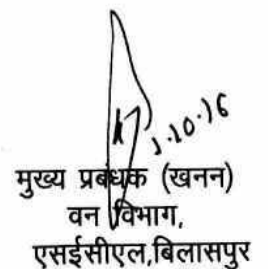 1.10.16
मुख्य प्रबंधक (खनन)
वन विभाग,
एसईसीएल,बिलासपुर